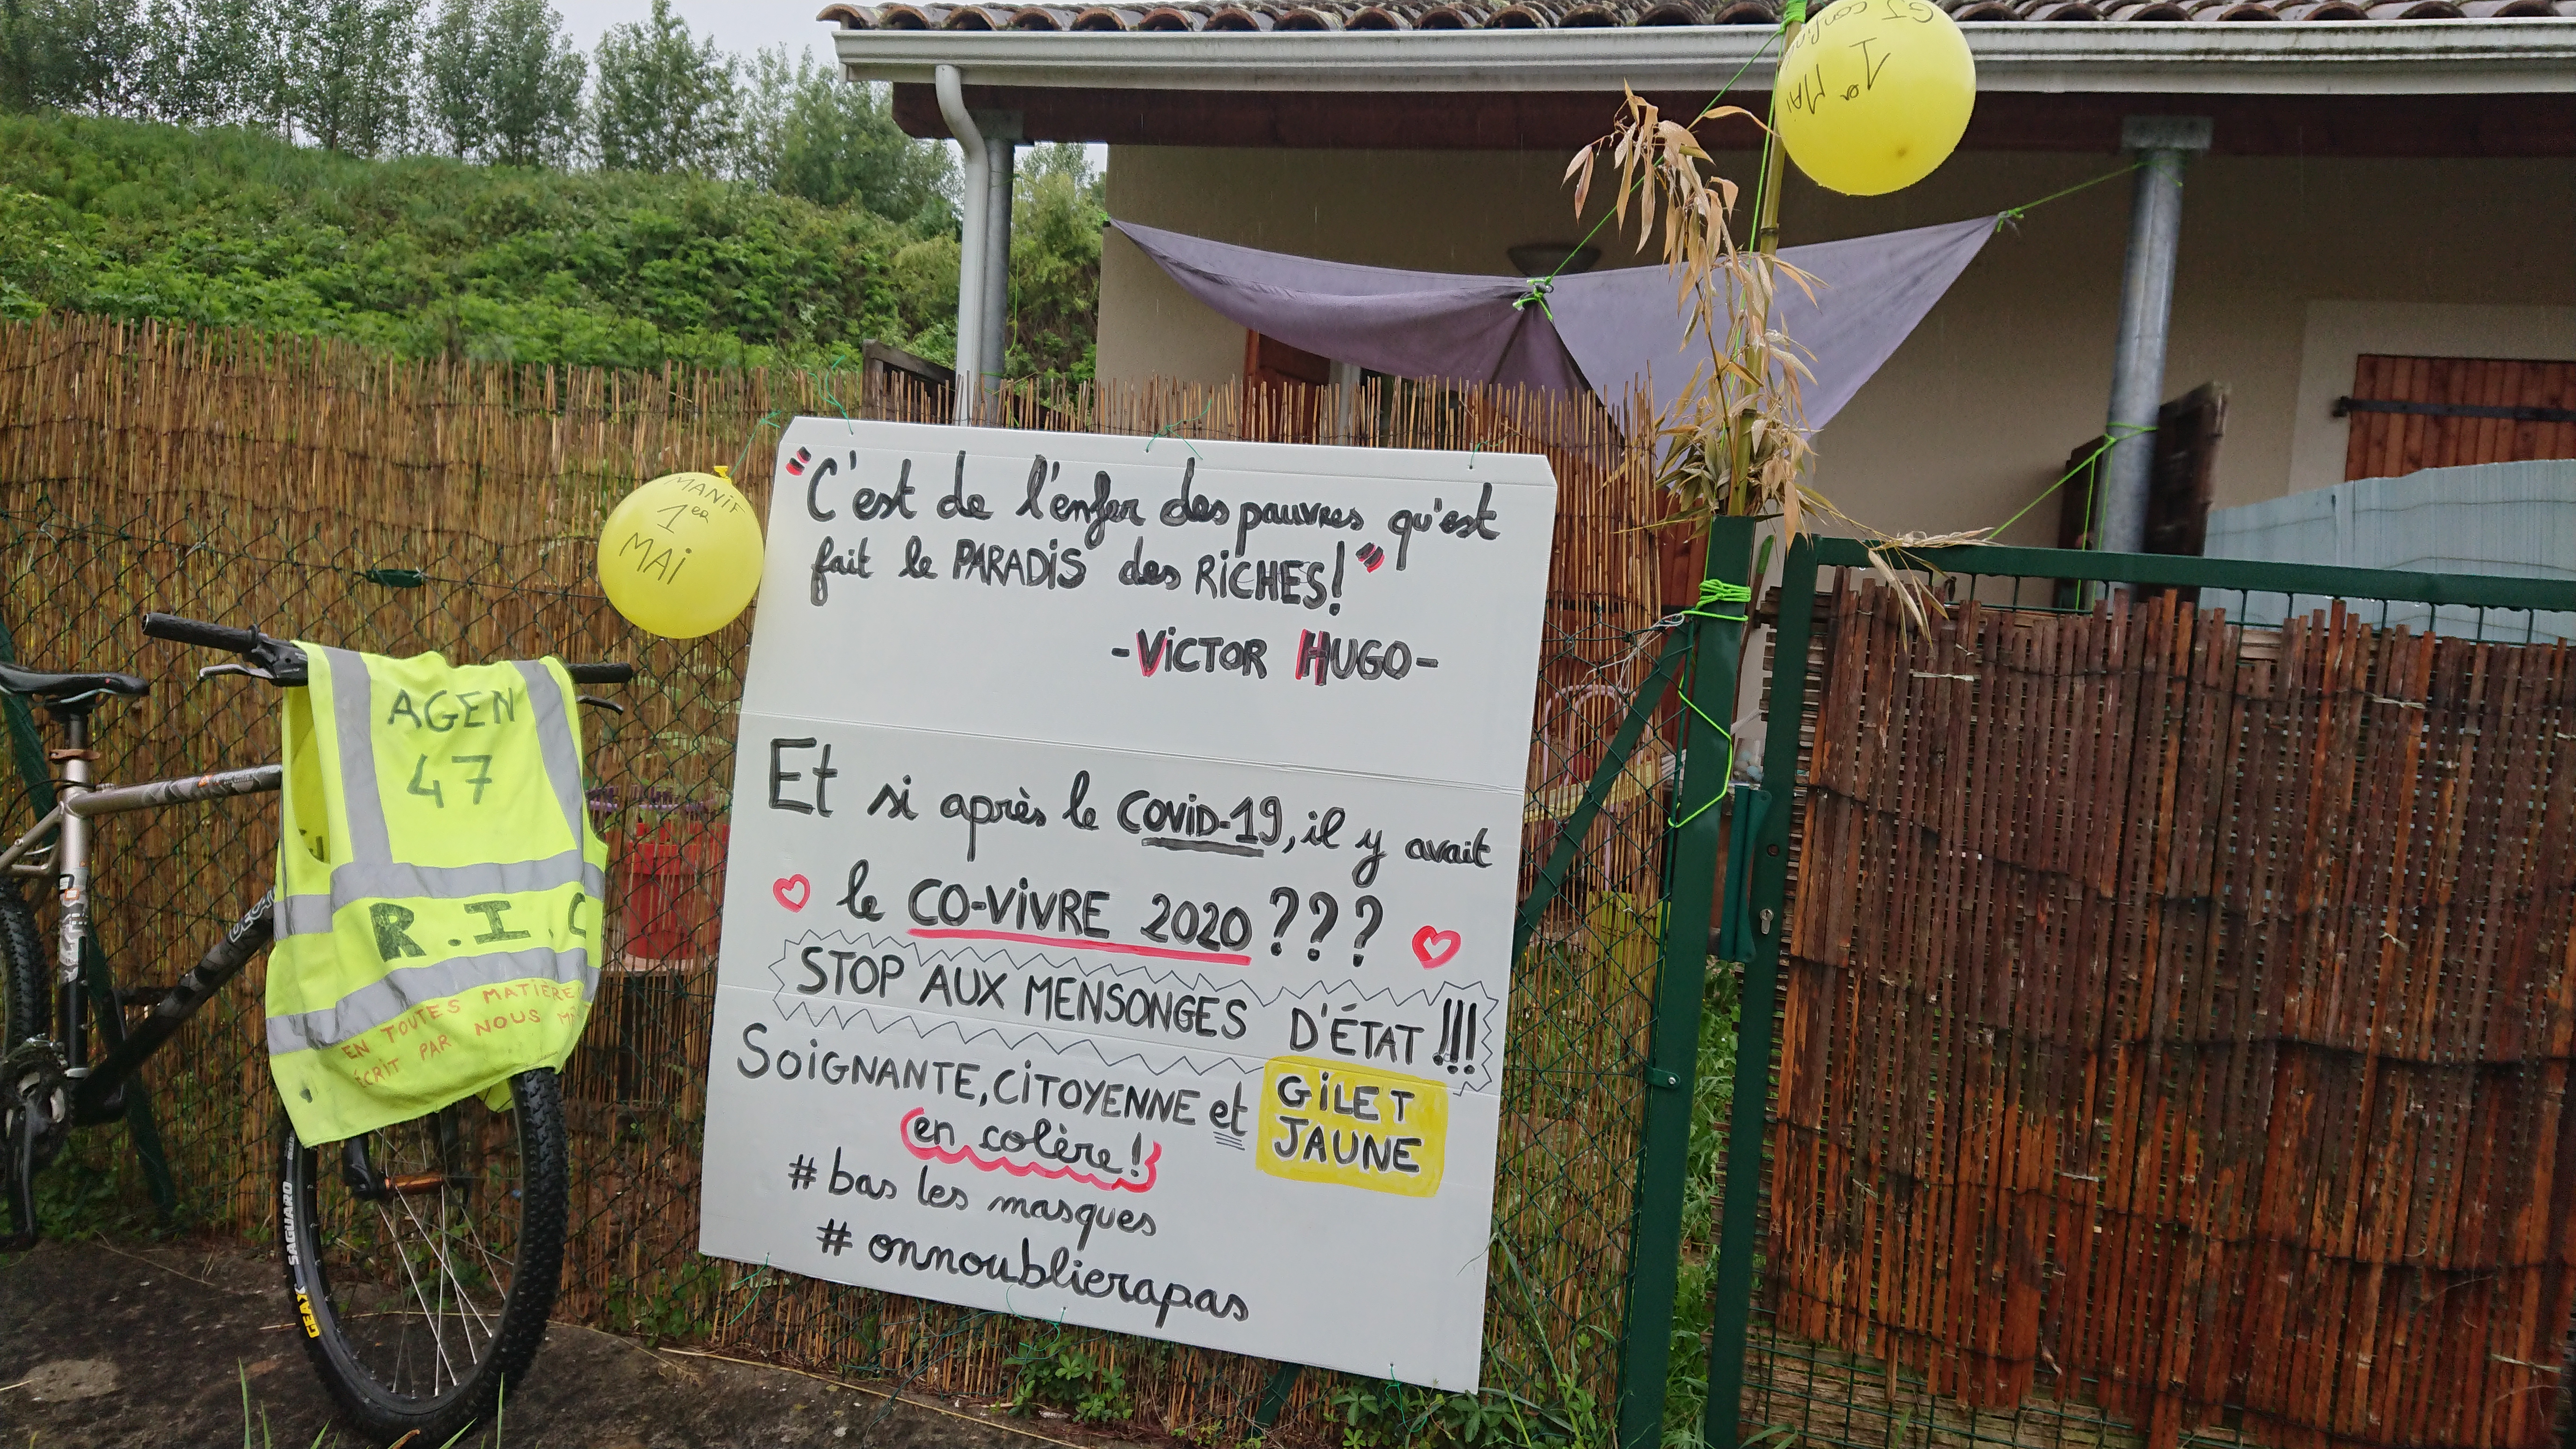 "C'est de l'enfer des pauvres qu'est
fait le PARADIS des RICHES!"
-VICTOR HUGO-
Et si après le COVID-19, il y avait
le CO-VIVRE 2020???
STOP AUX MENSONGES D'ÉTAT!!!
SOIGNANTE, CITOYENNE et GILET
JAUNE
en colère!
# bas les masques
# onnoublierapas
MANIF
1er
MAI
1er MAI
AGEN
47
R.I.C
EN TOUTES MATIÈRE
ÉCRIT PAR NOUS
GEAX SAGUARO